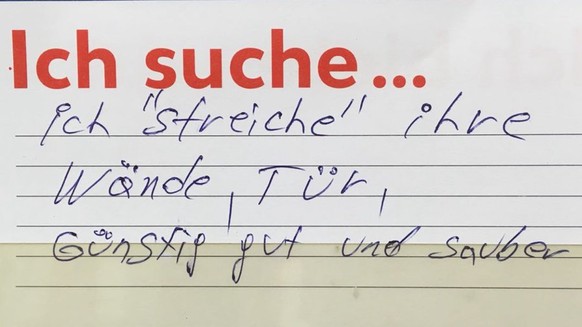 Ich suche...
ich "streiche" ihre
Wände, Tür,
Günstig gut und sauber